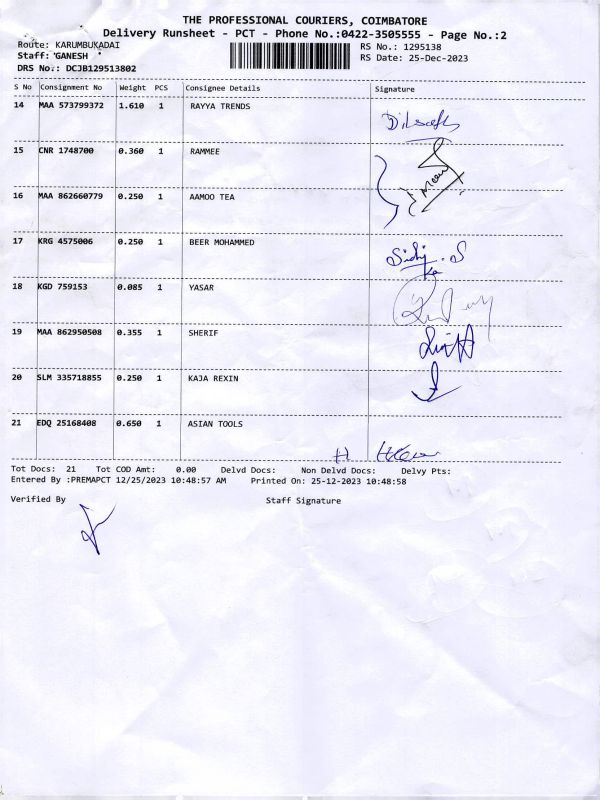 THE PROFESSIONAL COURIERS, COIMBATORE
Delivery Runsheet - PCT - Phone No.:0422-3505555 - Page No.:2
Route: KARUMBUKADAI RS No.: 1295138
Staff: GANESH RS Date: 25-Dec-2023
DRS No.: DCJB129513802
S No Consignment No Weight PCS Consignee Details Signature
14 MAA 573799372 1.610 1 RAYYA TRENDS
15 CNR 1748700 0.360 1 RAMMEE
16 MAA 862660779 0.250 1 AAMOO TEA
17 KRG 4575006 0.250 1 BEER MOHAMMED
18 KGD 759153 0.085 1 YASAR
19 MAA 862950508 0.355 1 SHERIF
20 SLM 335718855 0.250 1 KAJA REXIN
21 EDQ 25168408 0.650 1 ASIAN TOOLS
Tot Docs: 21 Tot COD Amt: 0.00 Delvd Docs: Non Delvd Docs: Delvy Pts:
Entered By :PREMAPCT 12/25/2023 10:48:57 AM Printed On: 25-12-2023 10:48:58
Verified By Staff Signature